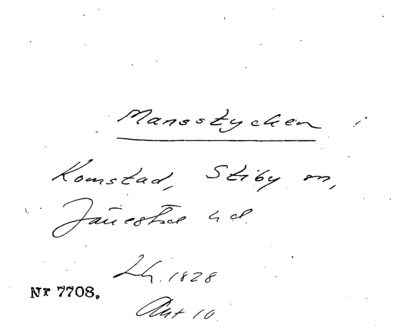 Mansstycken
Komstad, Stiby sn,
Järrestad hd.
Lh. 1828
Akt 10.
Nr 7708.